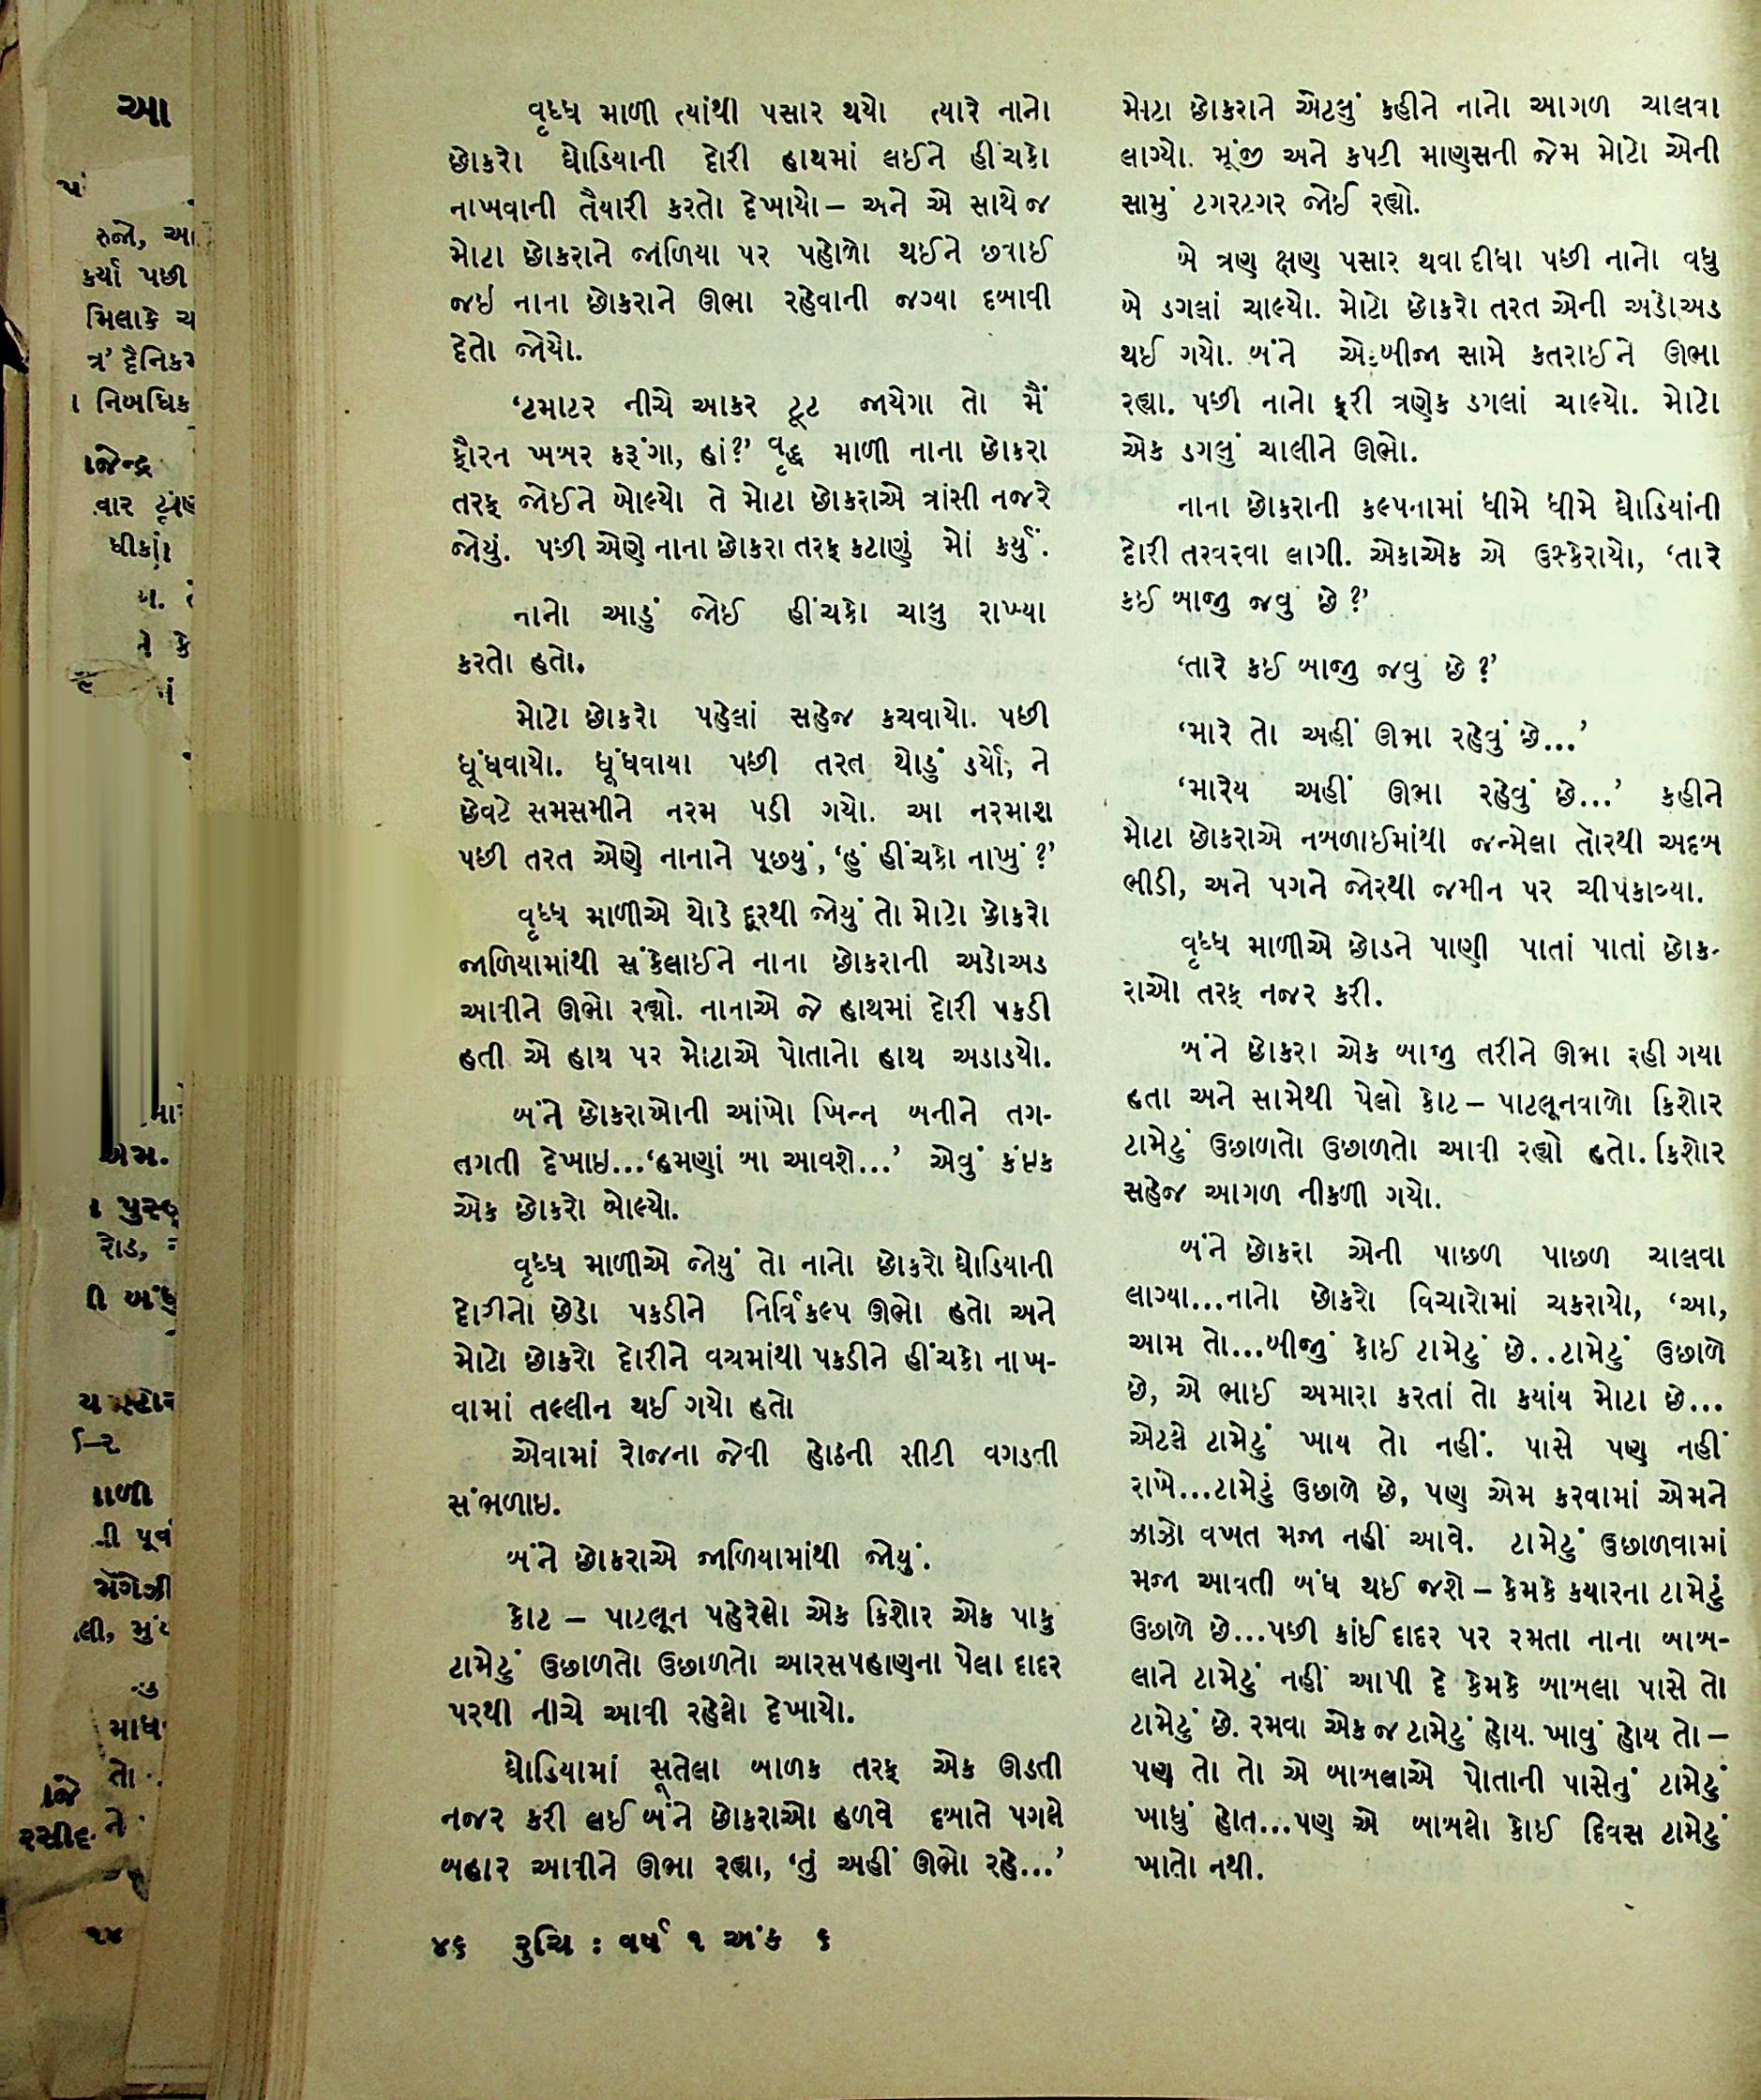 વૃધ્ધ માળી ત્યાંથી પસાર થયો ત્યારે નાનો
છોકરો ઘોડિયાની દોરી હાથમાં લઈને હીંચકો
નાખવાની તૈયારી કરતો દેખાયો – અને એ સાથે જ
મોટા છોકરાને જાળિયા પર પહોળો થઈને છવાઈ
જઇ નાના છોકરાને ઊભા રહેવાની જગ્યા દબાવી
દેતો જોયો.
‘ટમાટર નીચે આકર ટૂટ જાયેગા તો મૈં
ફૌરન ખબર કરૂંગા, હાં?’ વૃદ્ધ માળી નાના છોકરા
તરફ જોઈને બોલ્યો તે મોટા છોકરાએ ત્રાંસી નજરે
જોયું. પછી એણે નાના છોકરા તરફ કટાણું મોં કર્યું.
નાનો આડું જોઈ હીંચકો ચાલુ રાખ્યા
કરતો હતો.
મોટો છોકરો પહેલાં સહેજ કચવાયો. પછી
ધૂંધવાયો. ધૂંધવાયા પછી તરત થોડું ડર્યો, ને
છેવટે સમસમીને નરમ પડી ગયો. આ નરમાશ
પછી તરત એણે નાનાને પૂછ્યું, ‘હું હીંચકો નાખું ?’
વૃધ્ધ માળીએ થોડે દૂરથી જોયું તો મોટો છોકરો
જાળિયામાંથી સંકેલાઈને નાના છોકરાની અડોઅડ
આવીને ઊભો રહ્યો. નાનાએ જે હાથમાં દોરી પકડી
હતી એ હાથ પર મોટાએ પોતાનો હાથ અડાડયો.
બંને છોકરાઓની આંખો ખિન્ન બનીને તગ-
તગતી દેખાઇ...‘હમણાં બા આવશે...’ એવું કંઇક
એક છોકરો બોલ્યો.
વૃધ્ધ માળીએ જોયું તો નાનો છોકરો ઘોડિયાની
દોરીનો છેડો પકડીને નિર્વિકલ્પ ઊભો હતો અને
મોટો છોકરો દોરીને વચમાંથી પકડીને હીંચકો નાખ-
વામાં તલ્લીન થઈ ગયો હતો
એવામાં રોજના જેવી હોઠની સીટી વગડતી
સંભળાઇ.
બંને છોકરાએ જાળિયામાંથી જોયું.
કોટ – પાટલૂન પહેરેલો એક કિશોર એક પાકુ
ટામેટું ઉછાળતો ઉછાળતો આરસપહાણના પેલા દાદર
પરથી નીચે આવી રહેલો દેખાયો.
ઘોડિયામાં સૂતેલા બાળક તરફ એક ઊડતી
નજર કરી લઈ બંને છોકરાઓ હળવે દબાતે પગલે
બહાર આવીને ઊભા રહ્યા, ‘તું અહીં ઊભો રહે...’
૪૬ રુચિ : વર્ષ ૧ અંક ૬
મોટા છોકરાને એટલું કહીને નાનો આગળ ચાલવા
લાગ્યો. મૂંજી અને કપટી માણસની જેમ મોટો એની
સામું ટગરટગર જોઈ રહ્યો.
બે ત્રણ ક્ષણ પસાર થવા દીધા પછી નાનો વધુ
બે ડગલાં ચાલ્યો. મોટો છોકરો તરત એની અડોઅડ
થઈ ગયો. બંને એકબીજા સામે કતરાઈને ઊભા
રહ્યા. પછી નાનો ફરી ત્રણેક ડગલાં ચાલ્યો. મોટો
એક ડગલું ચાલીને ઊભો.
નાના છોકરાની કલ્પનામાં ધીમે ધીમે ઘોડિયાંની
દોરી તરવરવા લાગી. એકાએક એ ઉશ્કેરાયો, ‘તારે
કઈ બાજુ જવું છે ?’
‘તારે કઈ બાજુ જવું છે ?’
‘મારે તો અહીં ઊભા રહેવું છે...’
‘મારેય અહીં ઊભા રહેવું છે...’ કહીને
મોટા છોકરાએ નબળાઈમાંથી જન્મેલા તોરથી અદબ
ભીડી, અને પગને જોરથી જમીન પર ચીપકાવ્યા.
વૃધ્ધ માળીએ છોડને પાણી પાતાં પાતાં છોક-
રાઓ તરફ નજર કરી.
બંને છોકરા એક બાજુ તરીને ઊભા રહી ગયા
હતા અને સામેથી પેલો કોટ – પાટલૂનવાળો કિશોર
ટામેટું ઉછાળતો ઉછાળતો આવી રહ્યો હતો. કિશોર
સહેજ આગળ નીકળી ગયો.
બંને છોકરા એની પાછળ પાછળ ચાલવા
લાગ્યા...નાનો છોકરો વિચારોમાં ચકરાયો, ‘આ,
આમ તો...બીજું કોઈ ટામેટું છે..ટામેટું ઉછાળે
છે, એ ભાઈ અમારા કરતાં તો કયાંય મોટા છે...
એટલે ટામેટું ખાય તો નહીં. પાસે પણ નહીં
રાખે...ટામેટું ઉછાળે છે, પણ એમ કરવામાં એમને
ઝાઝો વખત મજા નહીં આવે. ટામેટું ઉછાળવામાં
મજા આવતી બંધ થઈ જશે – કેમકે કયારના ટામેટું
ઉછાળે છે...પછી કાંઈ દાદર પર રમતા નાના બાબ-
લાને ટામેટું નહીં આપી દે કેમકે બાબલા પાસે તો
ટામેટું છે. રમવા એક જ ટામેટું હોય. ખાવું હોય તો –
પણ તો તો એ બાબલાએ પોતાની પાસેનું ટામેટું
ખાધું હોત...પણ એ બાબલો કોઈ દિવસ ટામેટું
ખાતો નથી.